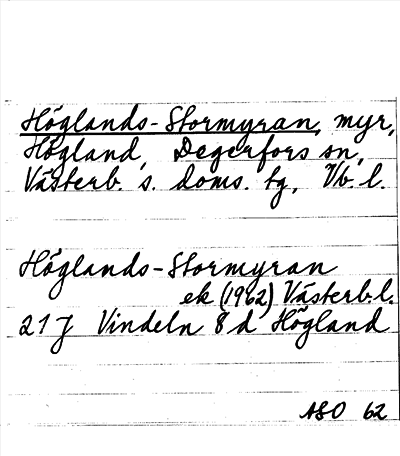 Höglands-Stormyran, myr,
Högland, Degerfors sn,
Västerb. s. doms. tg, Vb. l.
Höglands-Stormyran
ek (1962) Västerb. l.
21 J Vindeln 8 d Högland
ASO 62